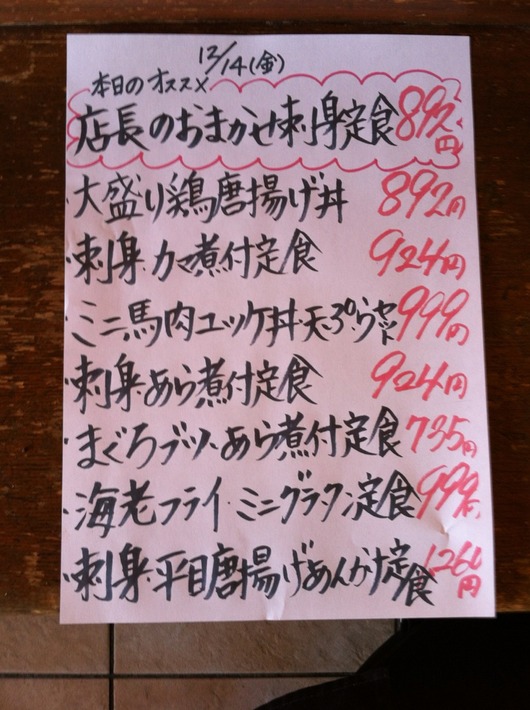 12/14(金)
本日のオススメ
店長のおまかせ刺身定食 892円
・大盛り鶏唐揚げ丼 892円
・刺身・カマ煮付定食 924円
・ミニ馬肉ユッケ丼・天ぷらセット 999円
・刺身・あら煮付定食 924円
・まぐろブツ・あら煮付定食 735円
・海老フライ・ミニグラタン定食 999円
・刺身・平目唐揚げあんかけ定食 1260円